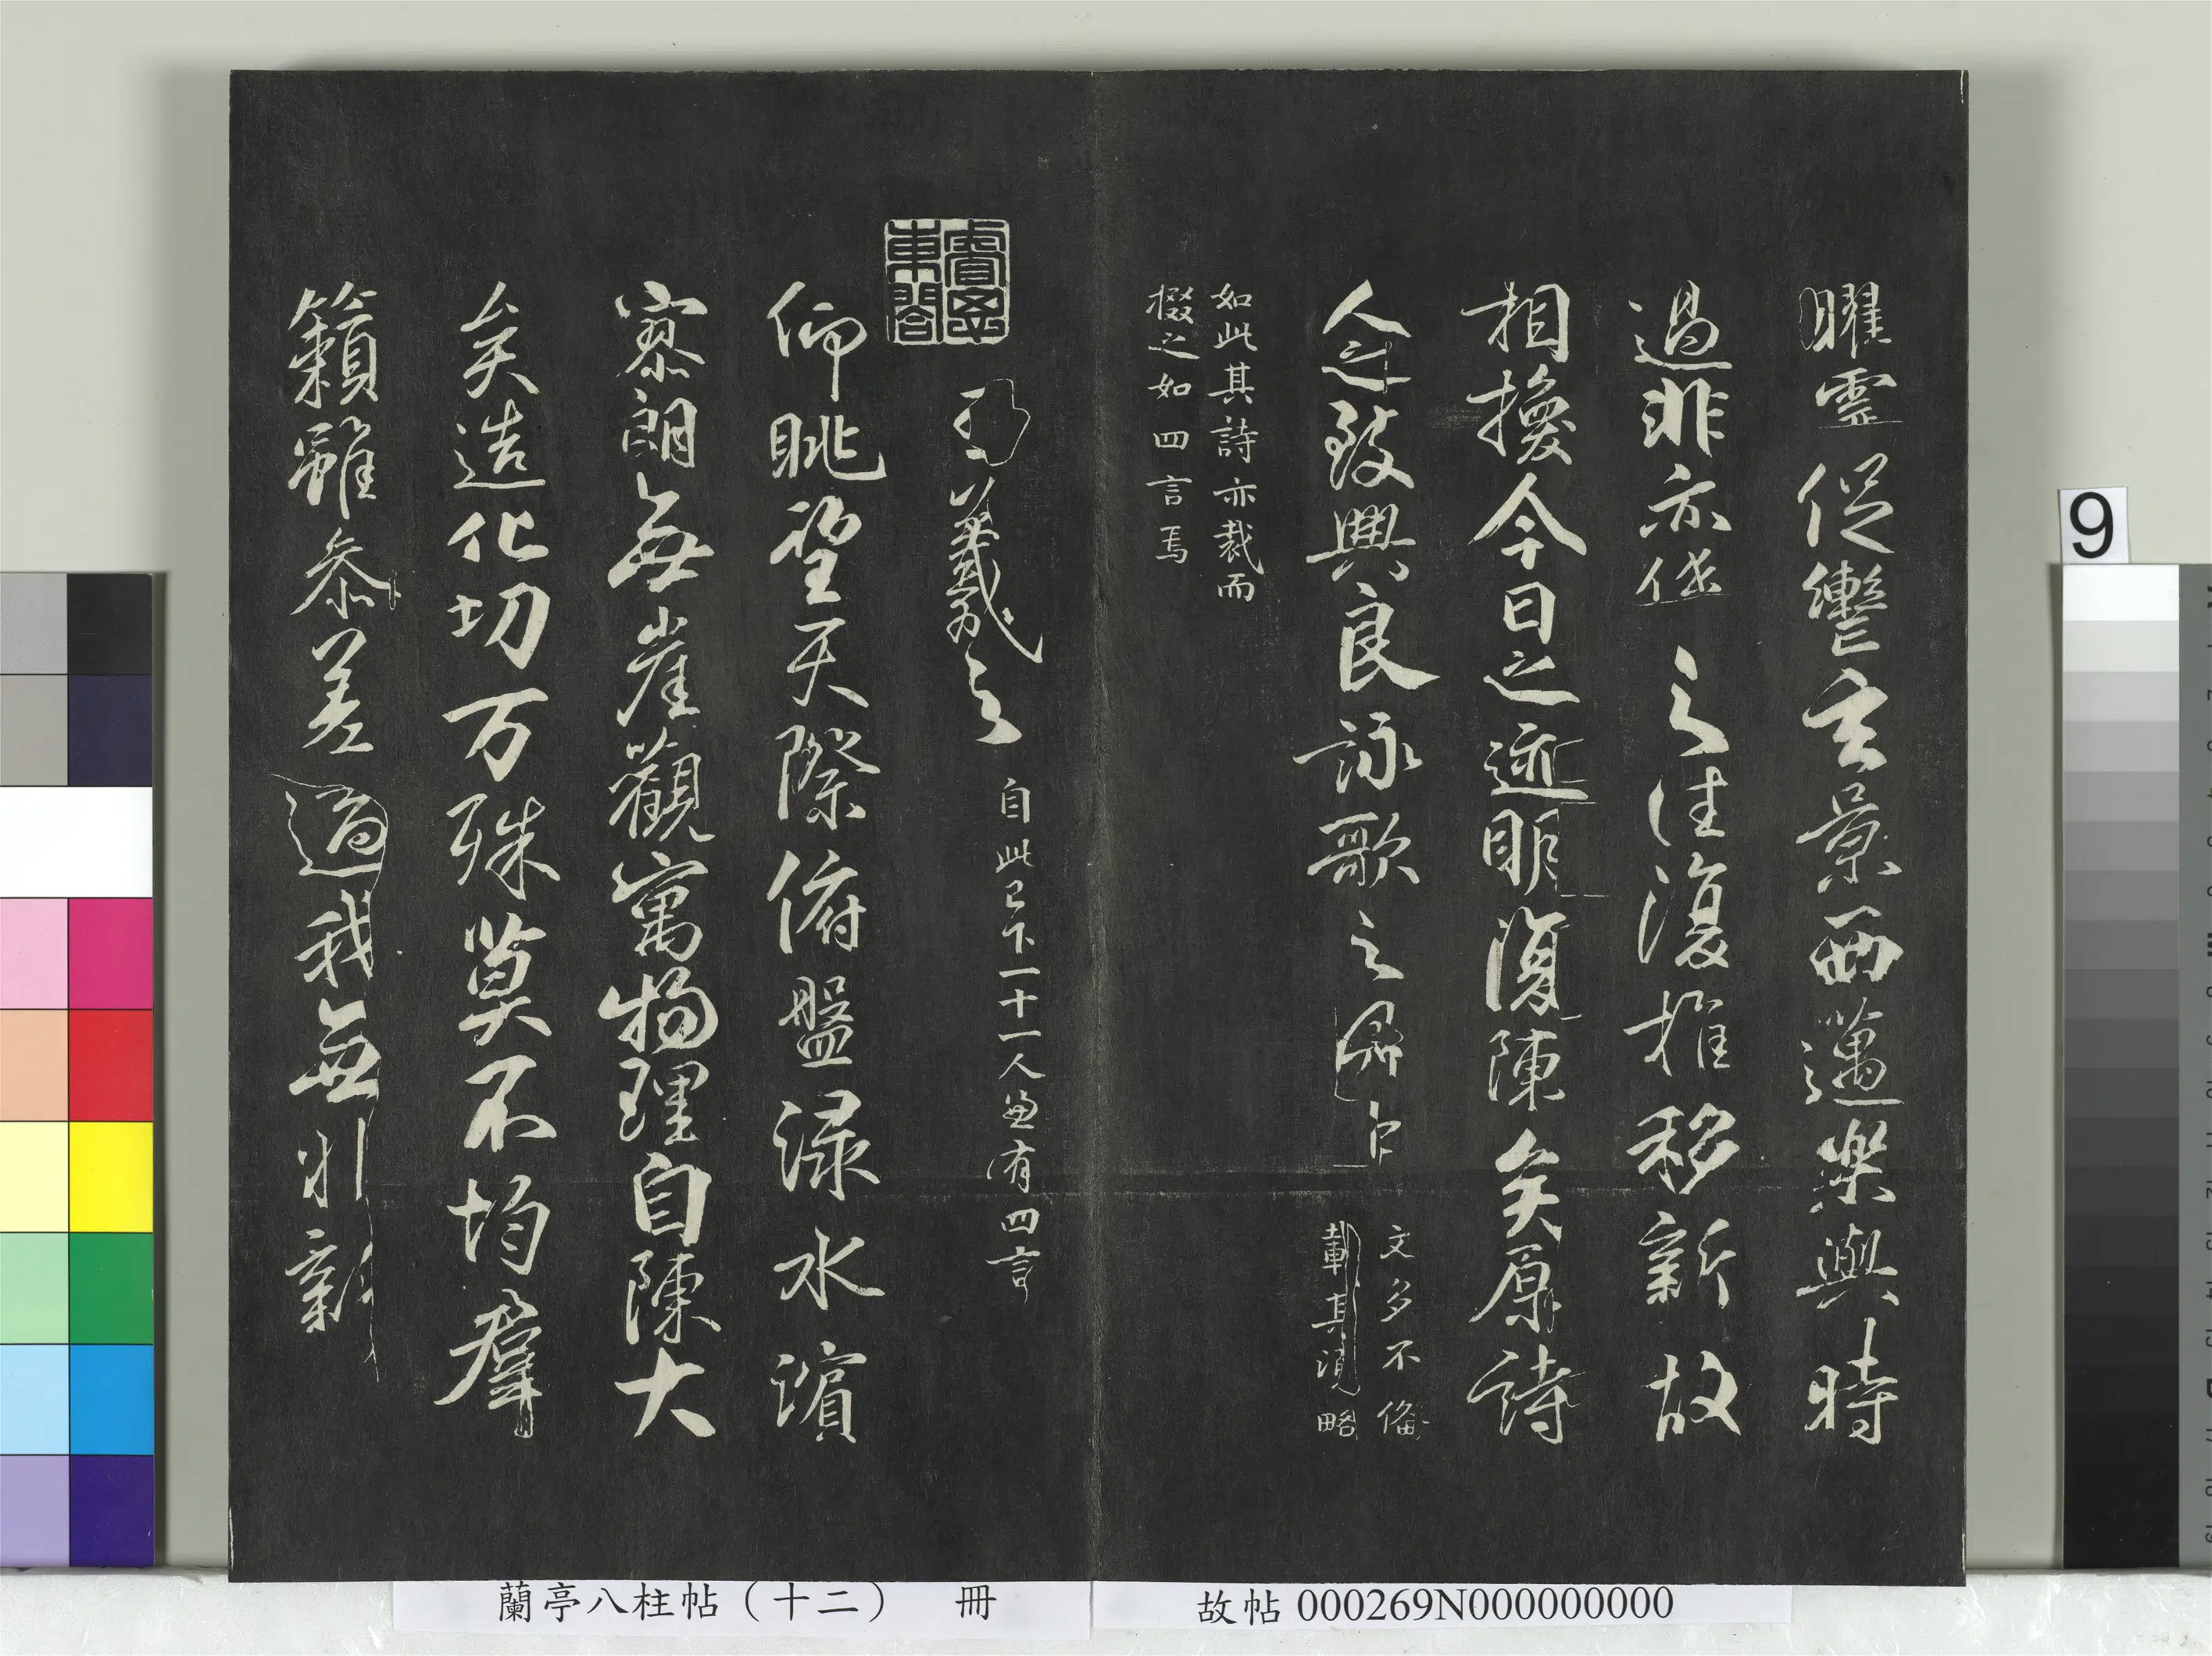 曜靈促轡玄景西邁樂與時
過悲亦係之往復推移新故
相換今日之迹明復陳矣原詩
人之致興良詠歌之有由
文多不備
載其大略
如此其詩亦裁而
掇之如四言焉
王羲之
自此已下一十一人並有四言
仰眺望天際俯盤淥水濱
寥朗無崖觀寓物理自陳大
矣造化切万殊莫不均群
籟雖參差適我無非新
蘭亭八柱帖（十二） 冊
故帖 000269N000000000
9